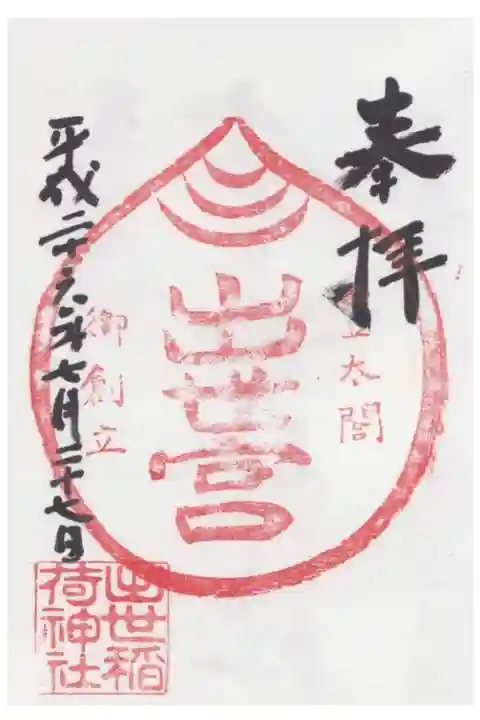 奉拝
豊太閤
出世宮
御創立
平成二十六年七月二十七日
出世稲
荷神社